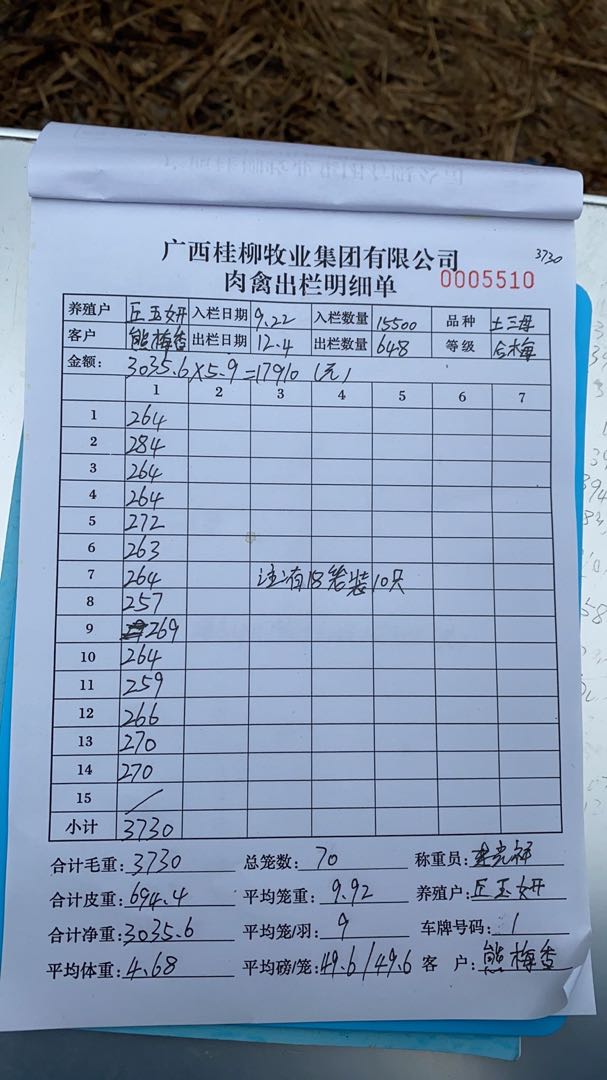 3730
广西桂柳牧业集团有限公司
肉禽出栏明细单 0005510
养殖户 丘玉妍 入栏日期 9.22 入栏数量 15500 品种 土三母
客户 熊梅香 出栏日期 12.4 出栏数量 648 等级 合梅
金额: 3035.6×5.9=17910(元)
1 2 3 4 5 6 7
1 264
2 284
3 264
4 264
5 272
6 263
7 264 注:有18笼装10只
8 257
9 269
10 264
11 259
12 266
13 270
14 270
15 /
小计 3730
合计毛重: 3730 总笼数: 70 称重员:
合计皮重: 694.4 平均笼重: 9.92 养殖户: 丘玉妍
合计净重: 3035.6 平均笼/羽: 9 车牌号码: 1
平均体重: 4.68 平均磅/笼: 49.6/49.6 客 户: 熊梅香